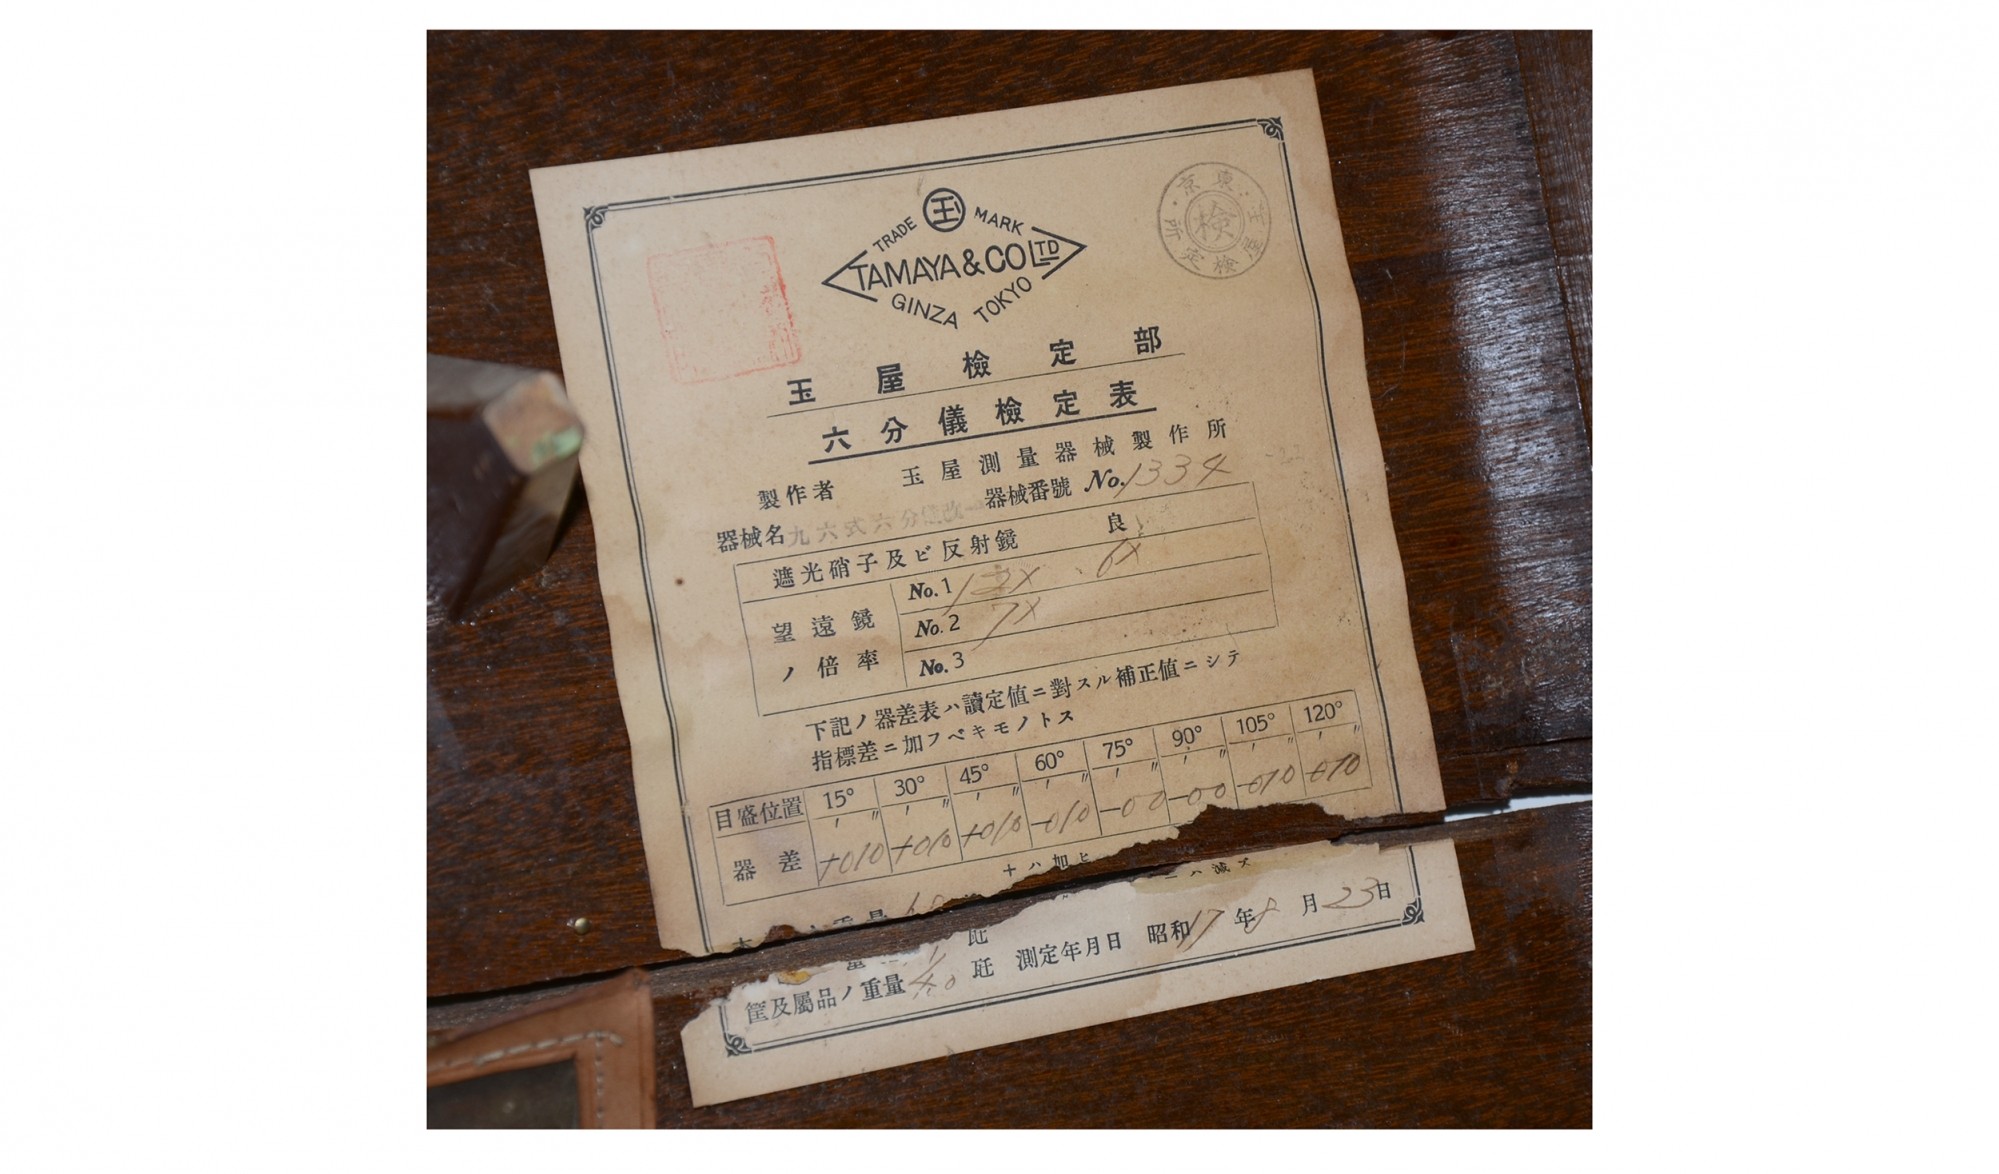 玉
TRADE MARK
TAMAYA & CO LTD
GINZA TOKYO
東京玉屋検定所
検
玉屋檢定部
六分儀檢定表
製作者 玉屋測量器械製作所
器械名 九六式六分儀改一 器械番號 No. 1334
遮光硝子及ビ反射鏡 良
望遠鏡ノ倍率
No. 1 6X
No. 2 7X
No. 3
下記ノ器差表ハ讀定値ニ對スル補正値ニシテ
指標差ニ加フベキモノトス
目盛位置 15° 30° 45° 60° 75° 90° 105° 120°
′ ″ ′ ″ ′ ″ ′ ″ ′ ″ ′ ″ ′ ″ ′ ″
器差 +010 +010 +010 -010 -00 -00 -010
+ハ加ヒ -ハ減ス
瓩
筐及屬品ノ重量 4.0 瓩 測定年月日 昭和17年8月23日